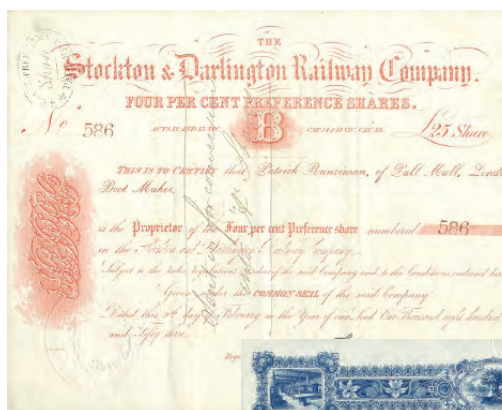 THE
Stockton & Darlington Railway Company.
FOUR PER CENT PREFERENCE SHARES.
No 586 B £25 Share
THIS IS TO CERTIFY that Patrick Runciman, of Pall Mall, Lond
Boot Maker,
is the Proprietor of the Four per cent Preference share numbered 586
in the Stockton and Darlington Railway Company,
Subject to the Rules, Regulations & Orders of the said Company and to the Conditions endorsed
Given under the COMMON SEAL of the said Company
Dated this 5th day of February in the Year of our Lord One Thousand eight hundred
and Fifty six.